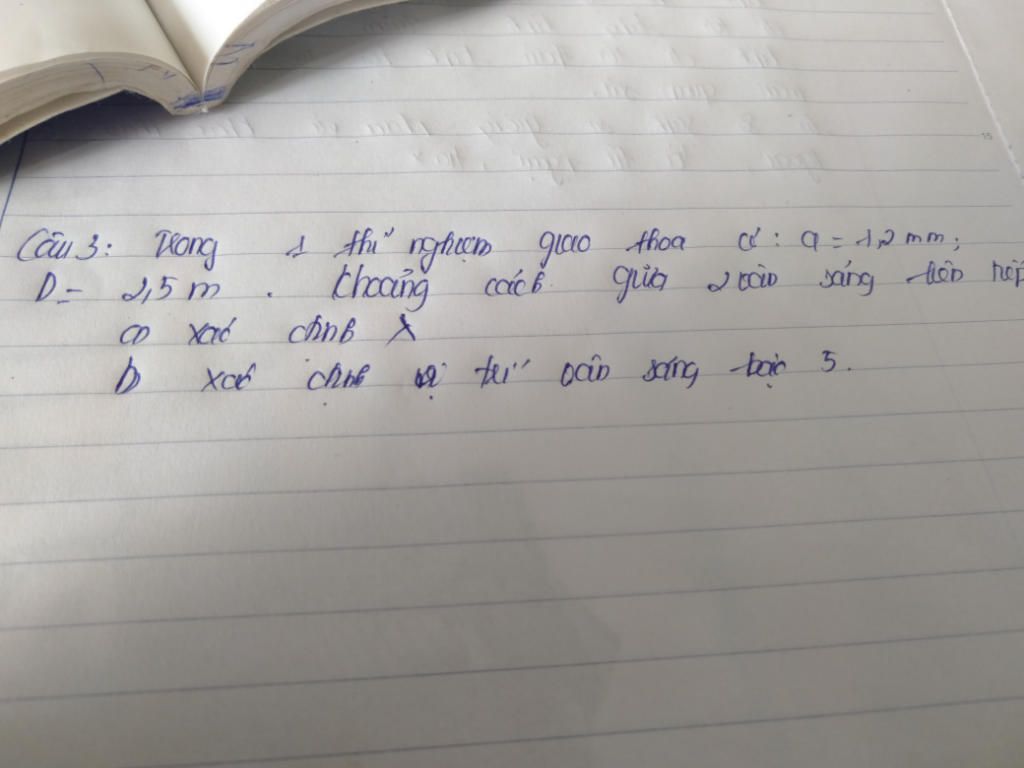 Câu 3: Trong 1 thí nghiệm giao thoa có: a = 1,2 mm;
D = 2,5 m. Khoảng cách giữa 2 vân sáng liên tiếp
a) xác định λ
b) xác định vị trí vân sáng bậc 5.